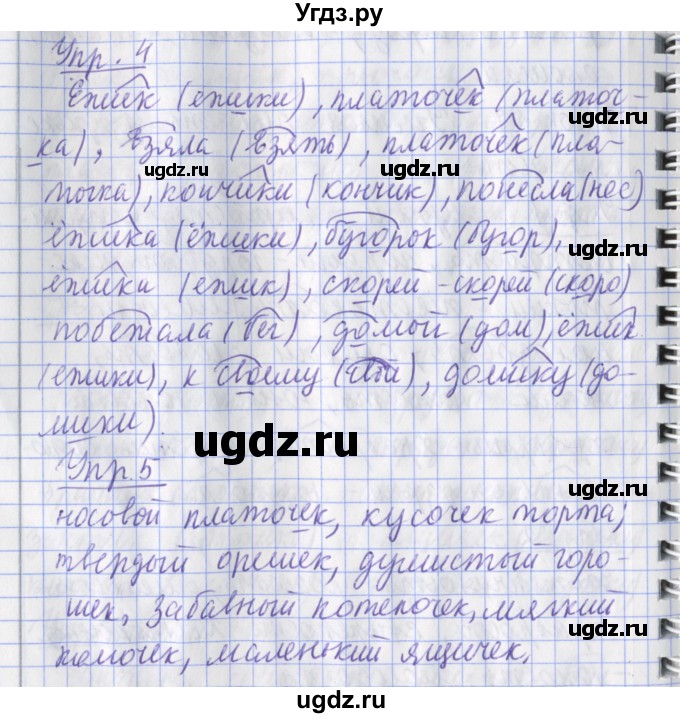 Угдз.ру
Упр. 4
Ёжик (ежики), платочек (платоч-
ка), взяла (взять), платочек (пла-
точка), кончики (кончик), понесла (нес)
ёжика (ёжики), бугорок (бугор),
ёжика (ежик), скорей-скорей (скоро)
побежала (бег), домой (дом), ёжик
(ежики), к своему (свой), домику (до-
мики).
Упр. 5
носовой платочек, кусочек торта,
твердый орешек, душистый горо-
шек, забавный котеночек, мягкий
комочек, маленький ящичек.
ugdz.ru
ugdz.ru
ugdz.ru
ugdz.ru
ugdz.ru
ugdz.ru
ugdz.ru
ugdz.ru
ugdz.ru
ugdz.ru